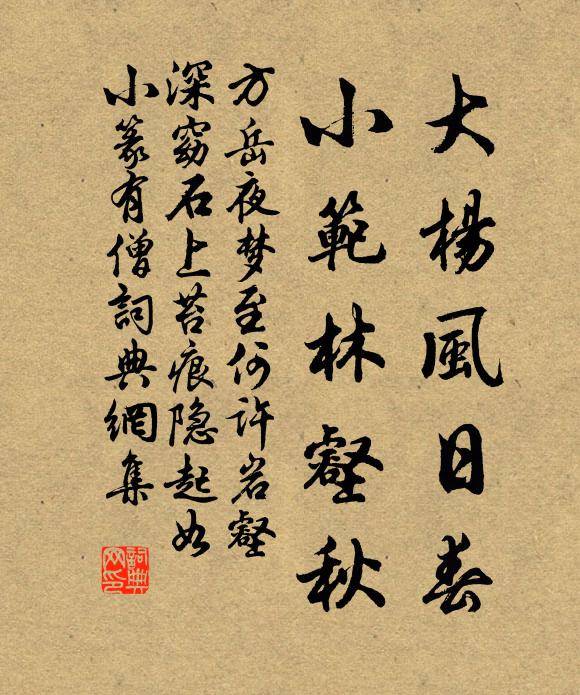 大楊風日春
小範林壑秋
方岳夜梦至何許岩壑
深窈石上苔痕隐起如
小篆有僧詞典網集
詞典网印